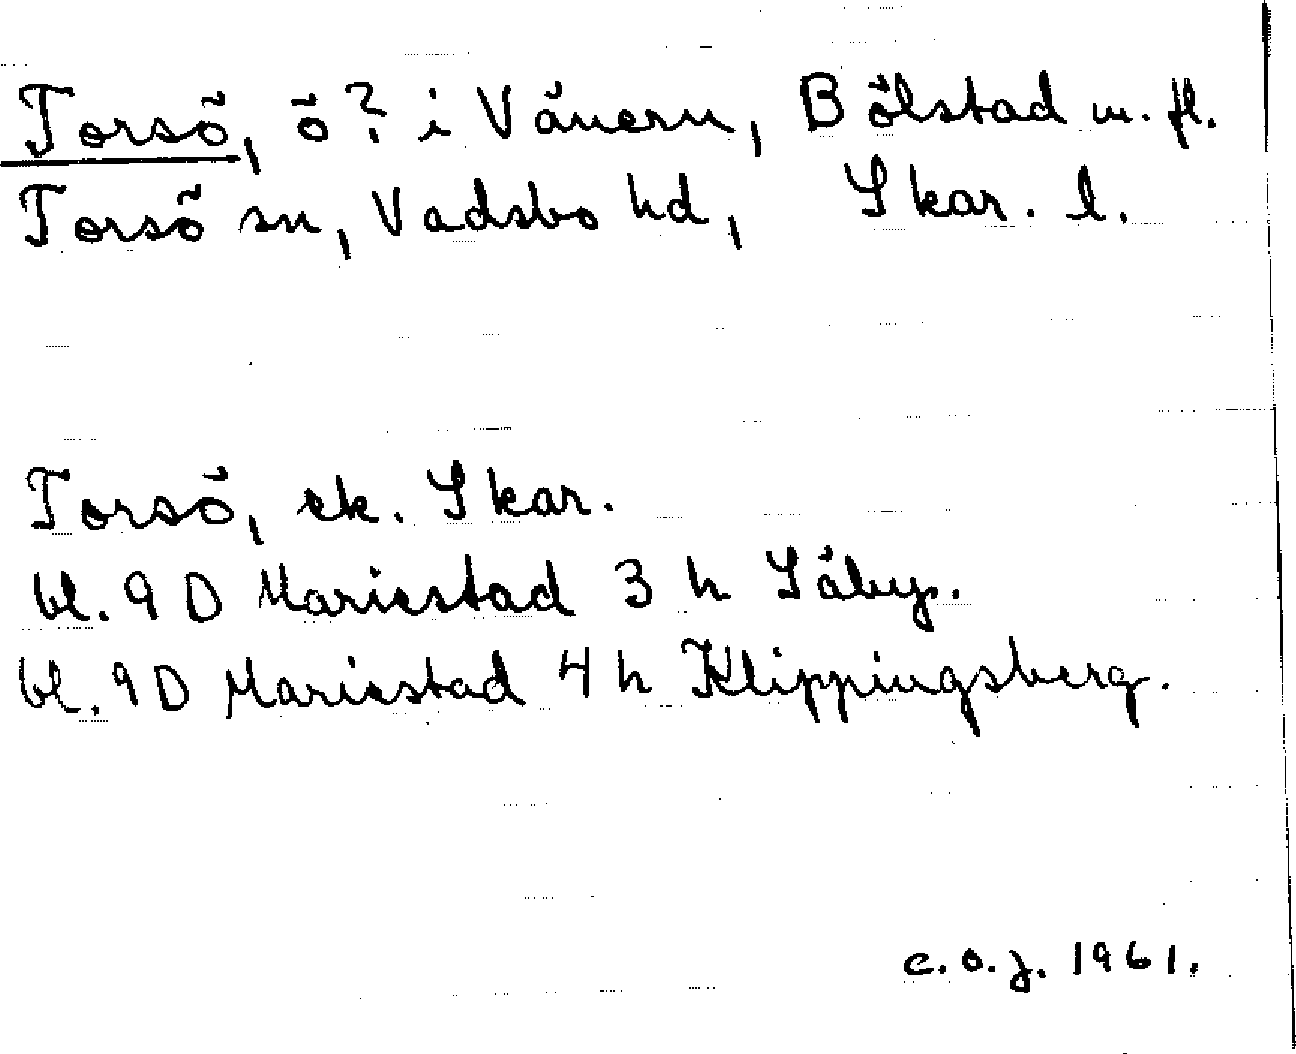 Torsö, ö? i Vänern, Bölstad m. fl.
Torsö sn, Vadsbo hd, Skar. l.
Torsö, ek. Skar.
bl. 9 D Mariestad 3 h Säby.
bl. 9 D Mariestad 4 h Klippingsberg.
c. o. j. 1961.